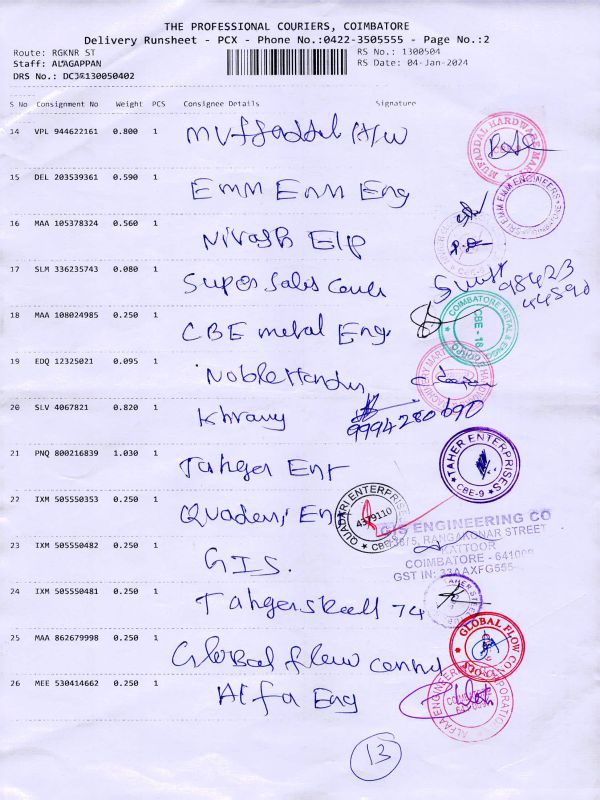 THE PROFESSIONAL COURIERS, COIMBATORE
Delivery Runsheet - PCX - Phone No.:0422-3505555 - Page No.:2
Route: RGKNR ST
RS No.: 1300504
Staff: ALAGAPPAN
RS Date: 04-Jan-2024
S No Consignment No Weight PCS Consignee Details Signature
14 VPL 944622161 0.800 1 Muffaddal H/W
MUFADDAL HARDWARE MART
15 DEL 203539361 0.590 1 Emm Emm Eng
EMM ENM ENGINEERS
16 MAA 105378324 0.560 1 Nivash Elp
17 SLM 336235743 0.080 1 Super Sales
98423
44590
18 MAA 108024985 0.250 1 CBE metal Eng
COIMBATORE METAL & ENGG CORPO
CBE - 18
19 EDQ 12325021 0.095 1
MACHINERY MART
20 SLV 4067821 0.820 1
9994280690
21 PNQ 800216839 1.030 1 Taher Ent
TAHER ENTERPRISES
CBE-9
22 IXM 505550353 0.250 1
QUADARI ENTERPRISES
4379110
CBE
23 IXM 505550482 0.250 1 GIS.
GIS ENGINEERING CO
RANGAKONAR STREET
KATTOOR
COIMBATORE - 641009
GST IN: 33AAXFG555
24 IXM 505550481 0.250 1 74
25 MAA 862679998 0.250 1 Global flow
GLOBAL FLOW CONTROLS
26 MEE 530414662 0.250 1 Alfa Eng
ENGINEERING CORPORATION
13